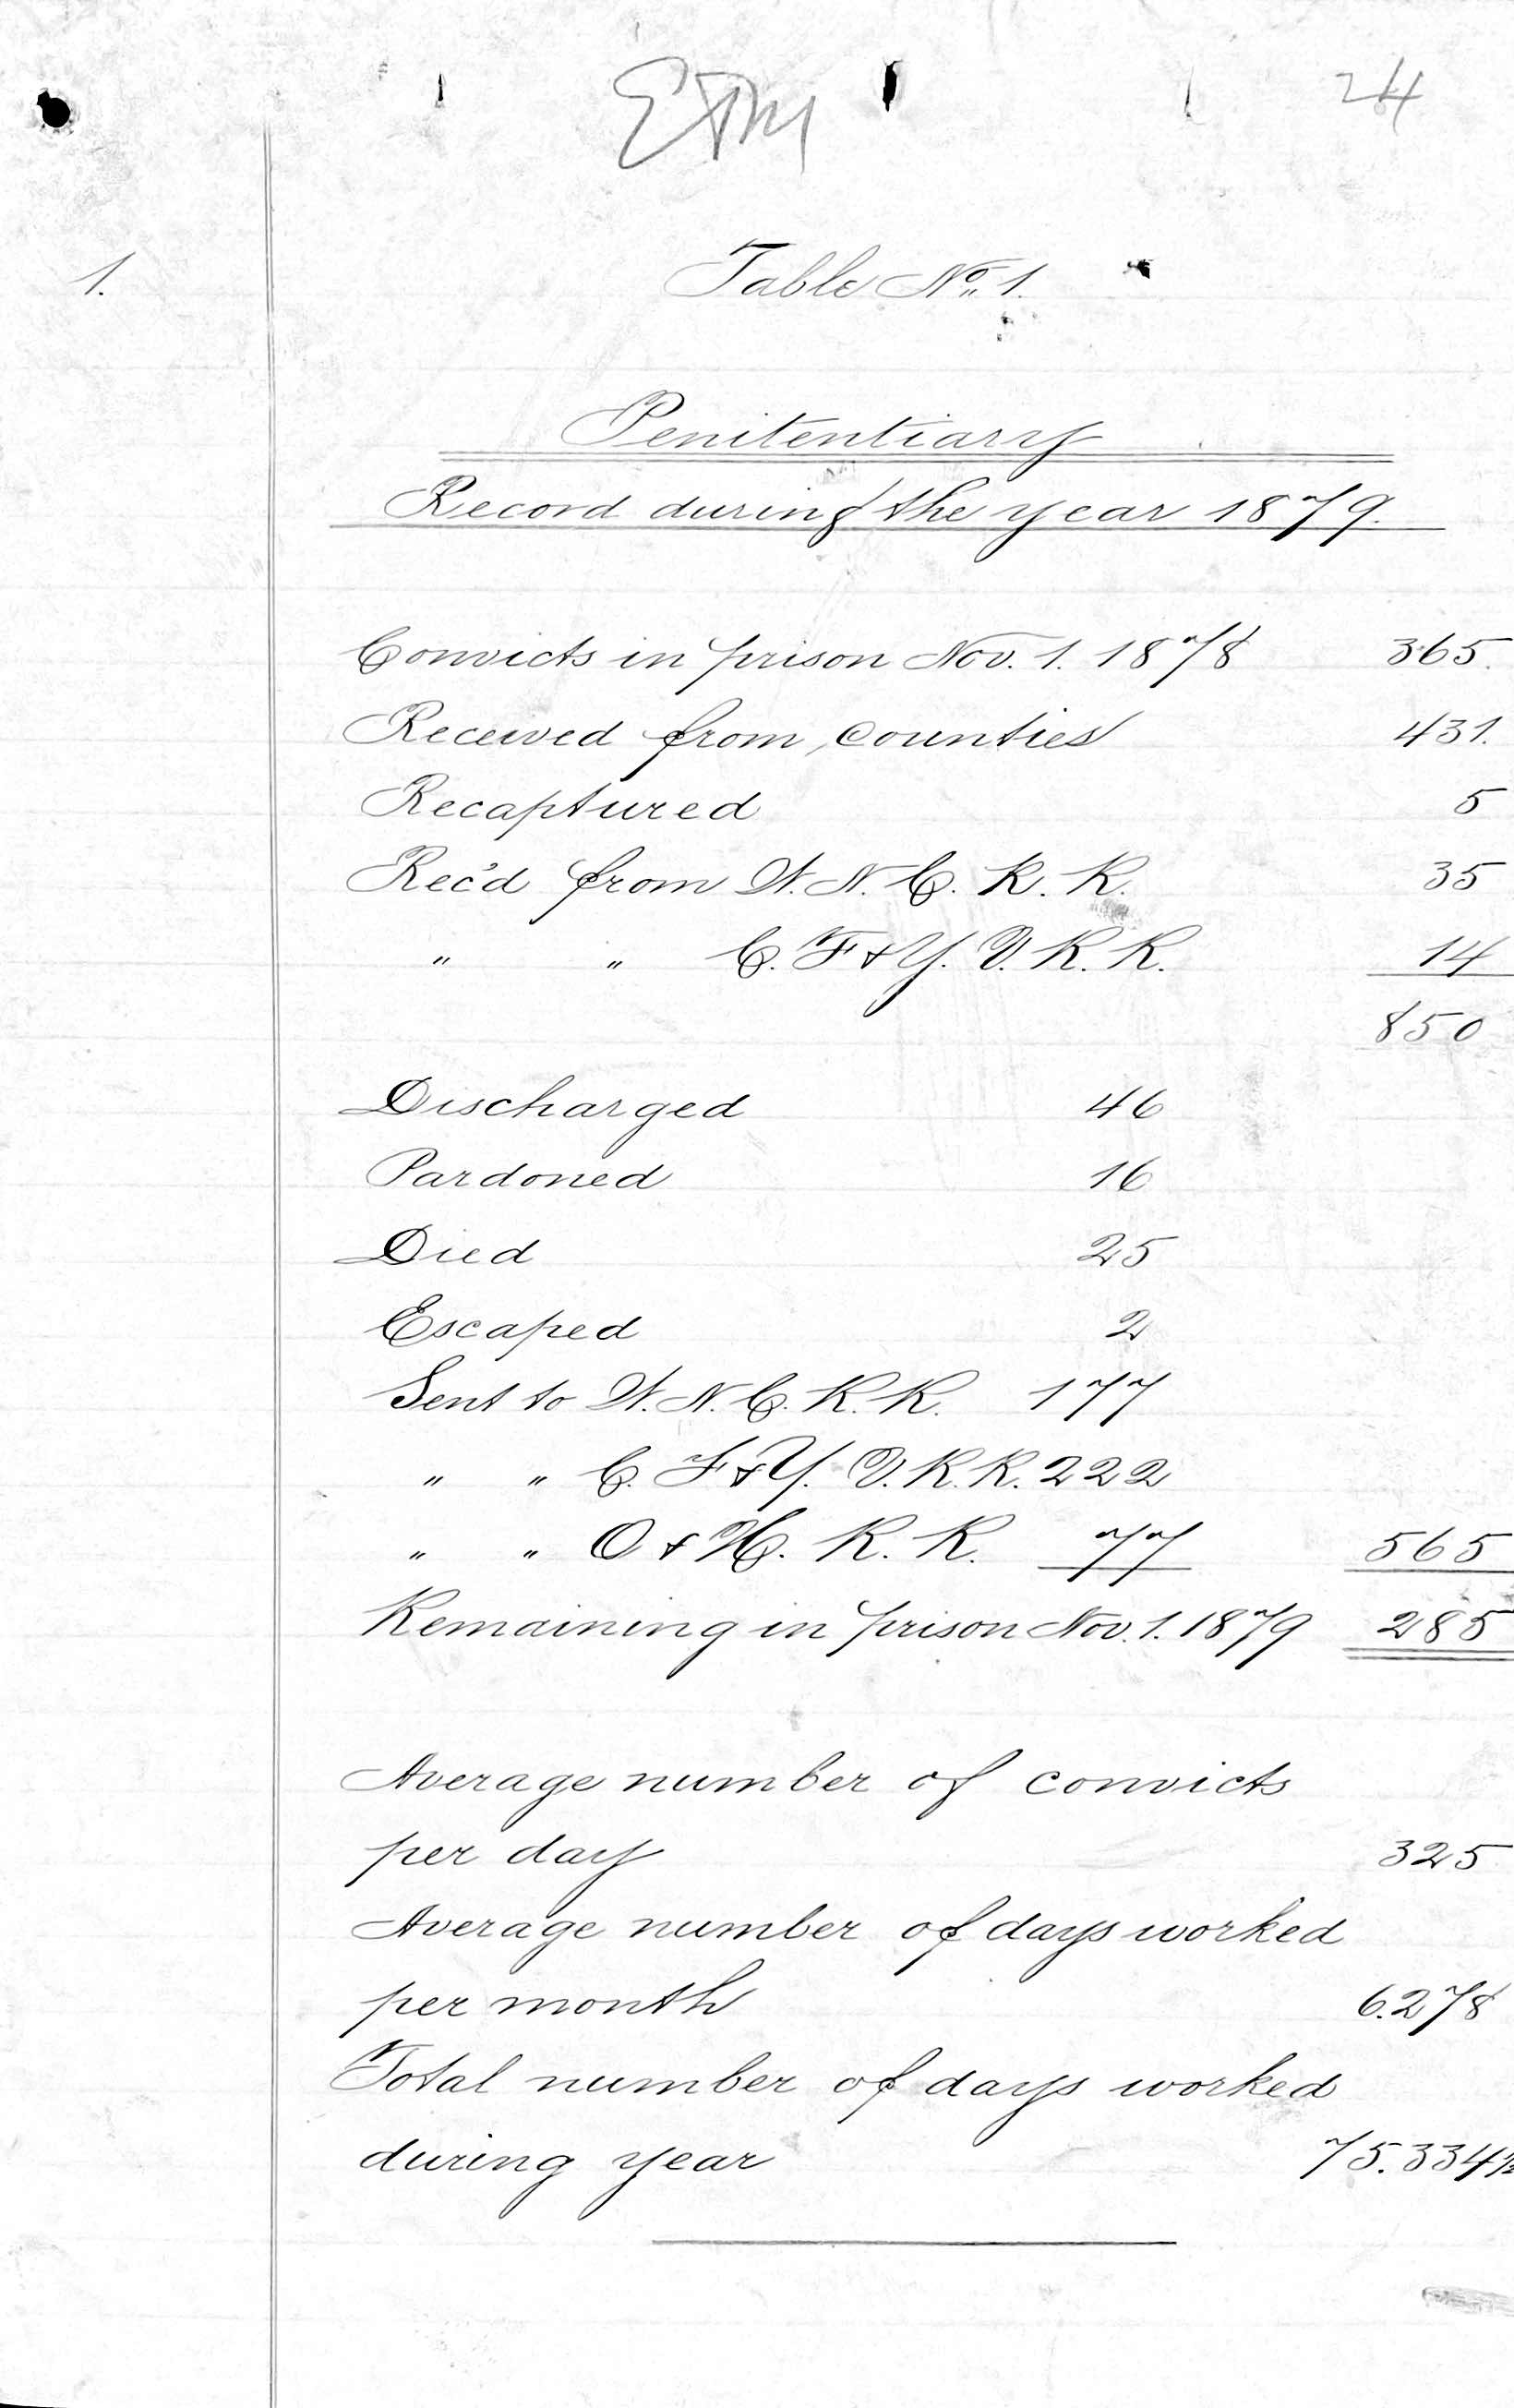 24
1.
Table No. 1.
Penitentiary
Record during the year 1879.
Convicts in prison Nov. 1. 1878 365.
Received from counties 431.
Recaptured 5
Rec'd from W. N. C. R. R. 35
" " C. F & Y. V. R. R. 14
850
Discharged 46
Pardoned 16
Died 25
Escaped 2
Sent to W. N. C. R. R. 177
" " C. F & Y. V. R. R. 222
" " O & H. R. R. 77 565
Remaining in prison Nov. 1. 1879 285
Average number of convicts
per day 325
Average number of days worked
per month 6.278
Total number of days worked
during year 75.334½